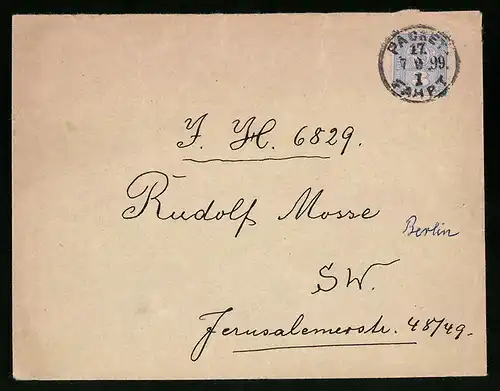 PACKET-
17.
7 9 .99.
1
FAHRT
J. H. 6829.
Rudolf Mosse
Berlin
SW.
Jerusalemerstr. 48/49.